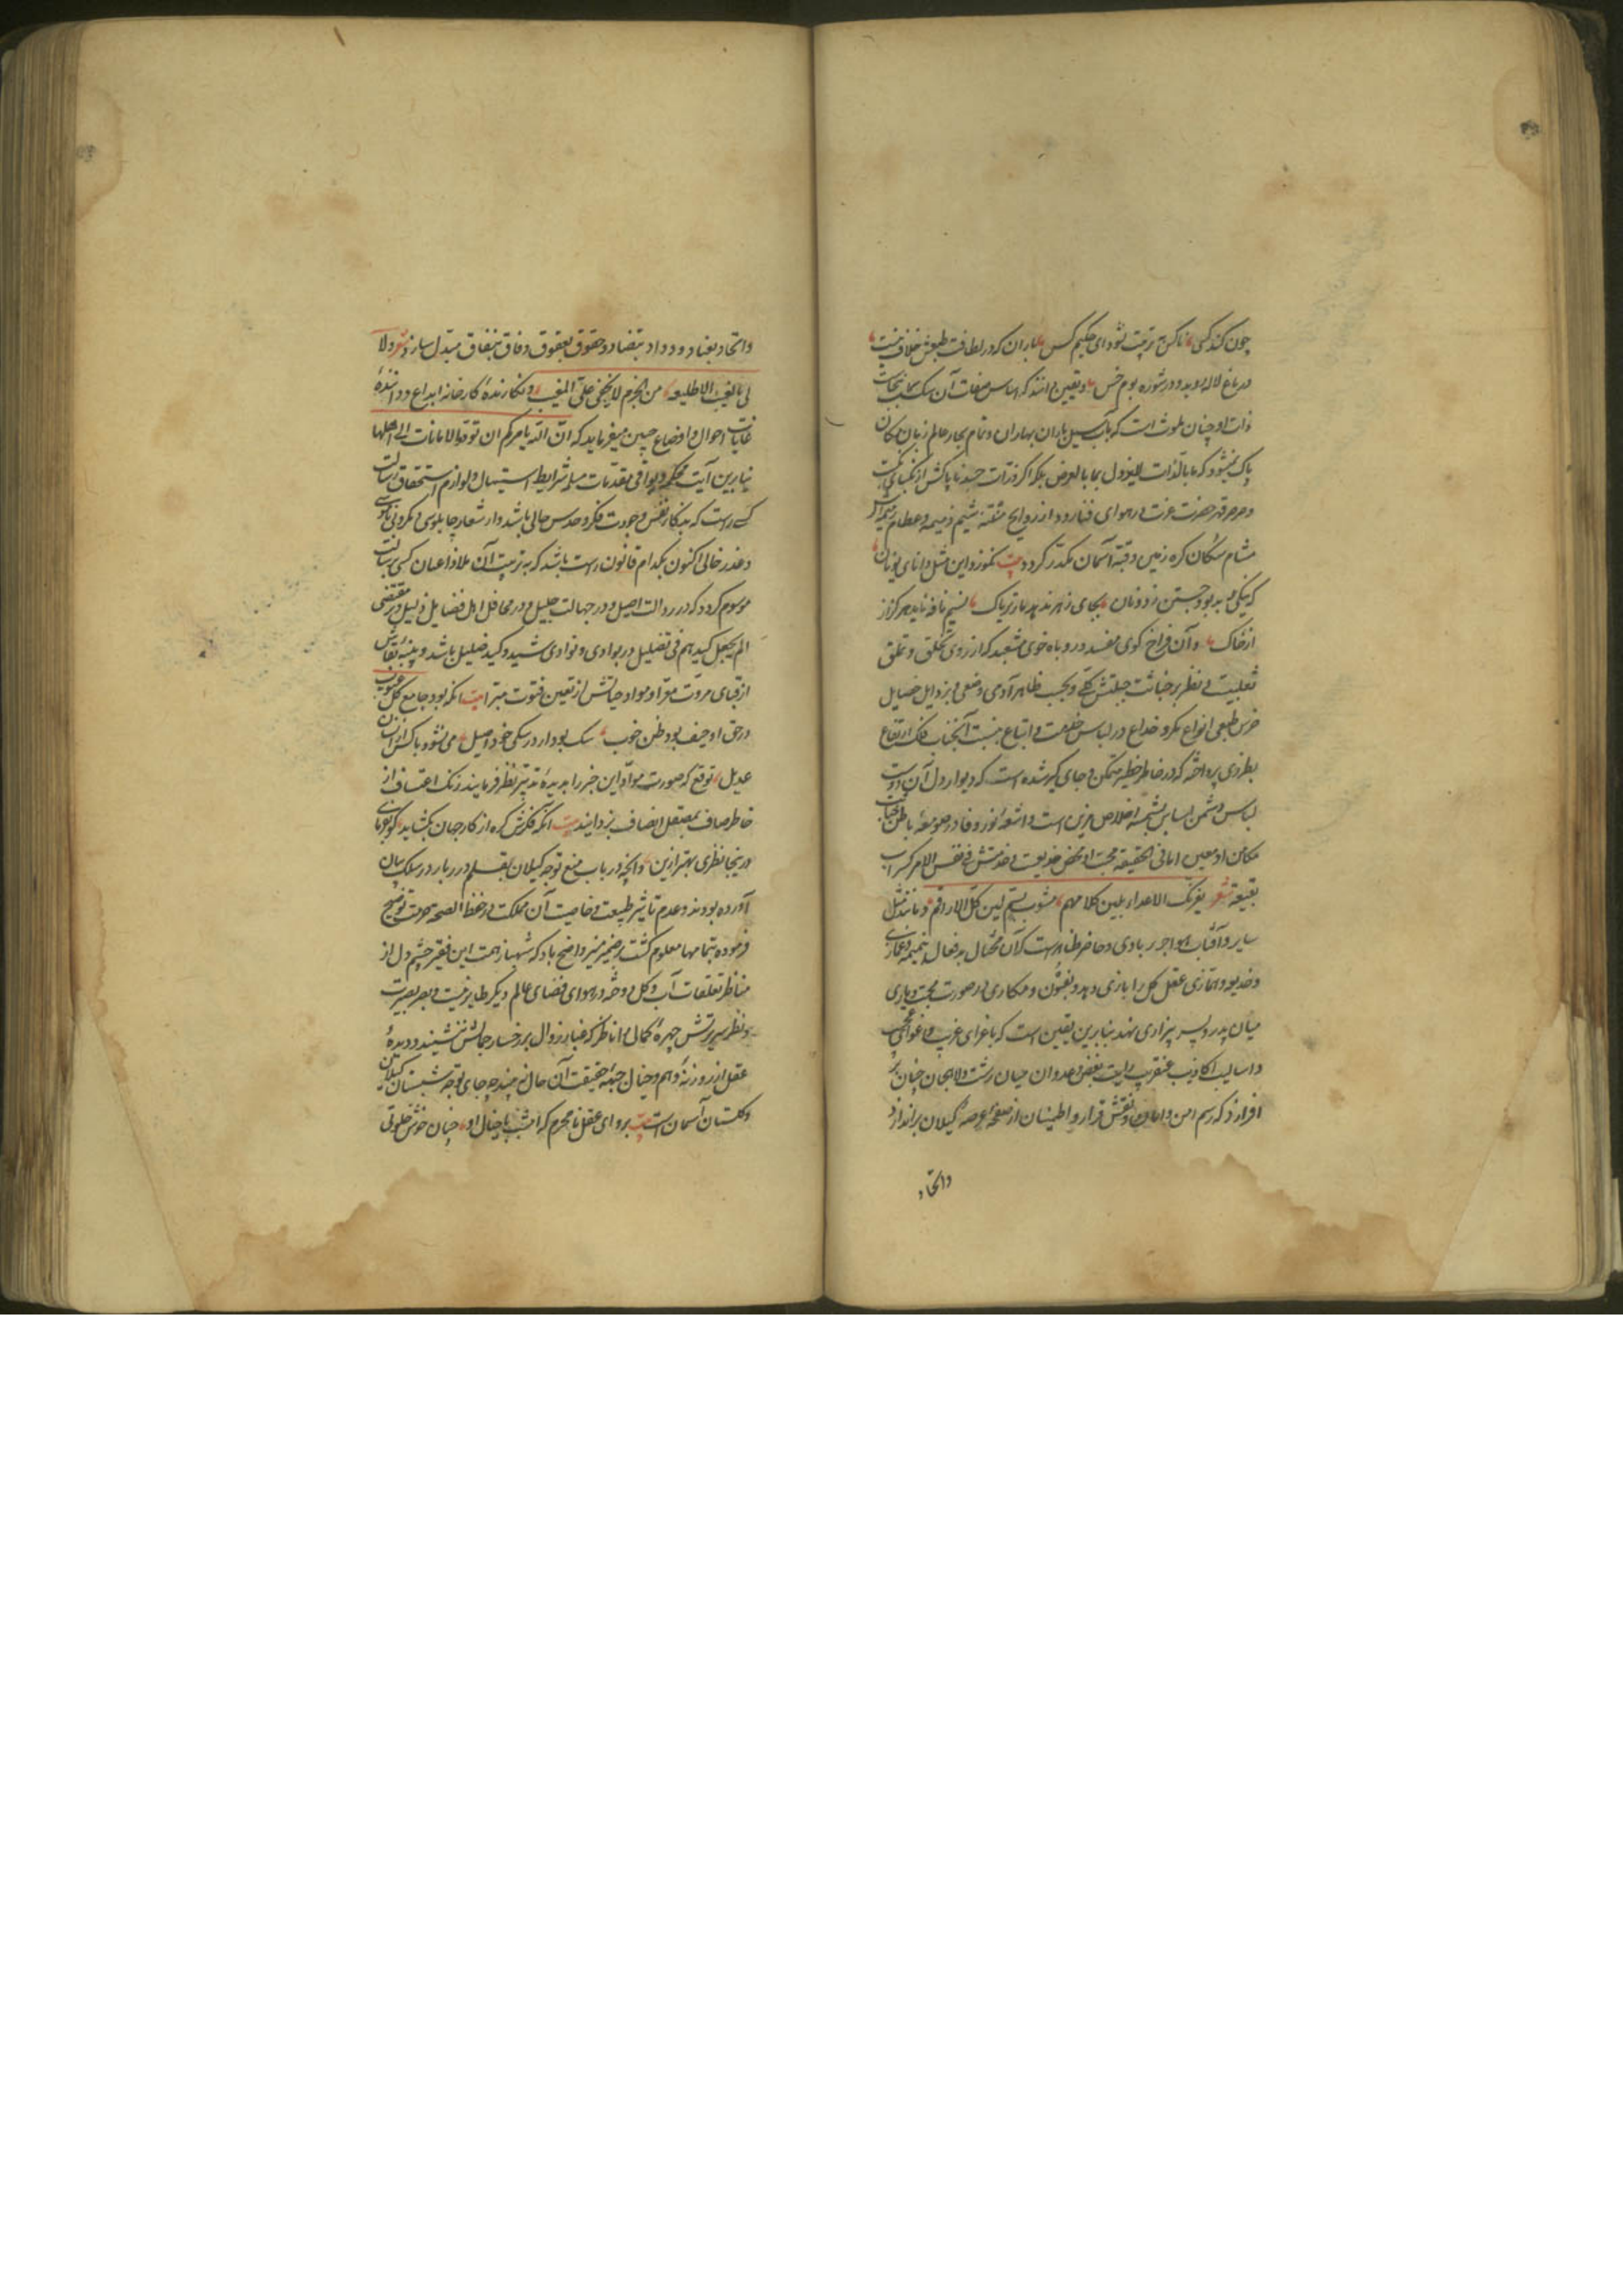 چون کند کسی ناکس بتربیت نشود ای حکیم کس باران که در لطافت طبعش خلاف نیست
در باغ لاله روید و در شوره بوم خس و یقین دانند که لباس صفات آن سگ نجاست
ذات او چنان ملوث است که بآب سیل باران بهاران و تمام بحار عالم زبان
پاک نشود که ما بالذات لایزول بما بالعرض بلکه اگر ذرات جسد ناپاکش از نکبای نکبت
و صرصر قهر حضرت عزت در هوای فنا رود از روایح منتنه شیم ذمیمه و عظام رمیمه اش
مشام سکان کره زمین و قبه آسمان مکدر گردد بیت نموزد این مثل دانای یونان
که نیکی بد بود جستن ز دونان بجای زهر ندهد مار تریاک نسیم نافه ناید هرگز از
از خاک و آن فراخ گوی مفسد و روباه خوی مشعبد که از روی تخلق و تملق
ثعلبیت در نظر بر خباثت جبلتش و بحسب ظاهر آدمی وضعی در رذایل خصایل
خرس طبعی انواع مکر و خداع در لباس خدمت و اتباع به نسبت آنجناب فلک ارتفاع
بطرزی پرداخته که در خاطر خطیر متمکن و جای گیر شده است که دیوار دل آن دوست
لباس دشمن اساس بشمسه اخلاص مزین است و اشعه انور وفا در صومعه باطن خباثت
مکامن او معین اما فی الحقیقه محبت او محض خدیعت و خدمتش فی نفس الامر کسراب
بقیعه شعر یغرنک الاعداء بلین کلامهم مشوب بسم لین کل الاراقم و مانند مثل
سایر و آفتاب هواجر بر بادی و حاضر ظاهرست که آن محتال بدفعال بنمیمه و غمازی
و خدیعه و همازی عقل کل را بازی دهد و بفنون و مکاری در صورت محبت و یاری
میان پدر و پسر بیزاری نهد بنابرین یقین است که باغرای غریب و اغوای عجیب
و اسالیب اکاذیب عنقریب رایت بغض و عدوان میان رشت و لاهجان چنان بر
افرازد که رسم امن و امان و نقش قرار و اطمینان از صفحه عرصه گیلان براندازد
واتحاد
واتحاد بعناد و وداد بتضاد و حقوق بعقوق و وفاق بنفاق مبدل سازد شعر ولا
لی بالغیب الاطلیعه من الحزم لا یخفی علی المغیب و نگارنده کارخانه ابداع و داننده
غایات احوال و اوضاع چنین میفرماید که ان الله یامرکم ان تؤدوا الامانات الی اهلها
بنابرین آیت محکم و بوافی مقدمات مسلم شرایط استیهال و لوازم استحقاق رسالت
کسی راست که بدنگار نفس و جودت فکر و حدس حالی باشد و از شعار چاپلوسی و مکر و بی ناموسی
و غدر خالی اکنون بکدام قانون راست باشد که به تربیت آن ملاذ اعیان کسی برسالت
موسوم گردد که در رذالت اصیل و در جهالت جلیل و در محافل اهل فضایل ذلیل و بر مقتضی
الم یجعل کیدهم فی تضلیل در بوادی و نوادی شید و کید ضلیل باشد و بنیه نقایش
از قبای مروت معرا و مواد حیاتش از تعین فتوت مبرا بیت آنکه بود جامع کل عیوب
در حق او حیف بود ظن خوب سگ بود ار در سگی خود اصیل می نشود با کس از انسان
عدیل توقع که صورت مواد این خبر را بدیده تدبر نظر فرمایند و زنگ اعتساف از
خاطر صاف بمصقل انصاف بزدایند بیت آنکه فکرش گره از کار جهان بگشاید گو بفرمای
درینجا نظری بهتر ازین و آنچه در باب منع توجه گیلان بقلم درر بار در سلک بیان
آورده بودند و عدم تاثیر طبیعت و خاصیت آن مملکت در حفظ الصحه صورت توضیح
فرموده بتمامها معلوم گشت بر ضمیر منیر واضح باد که شهباز همت این فقیر چشم دل از
مناظر تعلقات آب و گل دوخته در هوای فضای عالم دیگر طایرست و بصر بصیرت
و نظر سریرتش چهره کمالی را ناظر که غبار زوال بر رخسار جمالش ننشیند و دیده
عقل از روزنه وهم و خیال جبهه حقیقت آن حال نبیند چه جای توجه شبستان گیلان
و گلستان آسمان است بیت برو ای عقل نامحرم که امشب با خیال او چنان خوش خلوتی